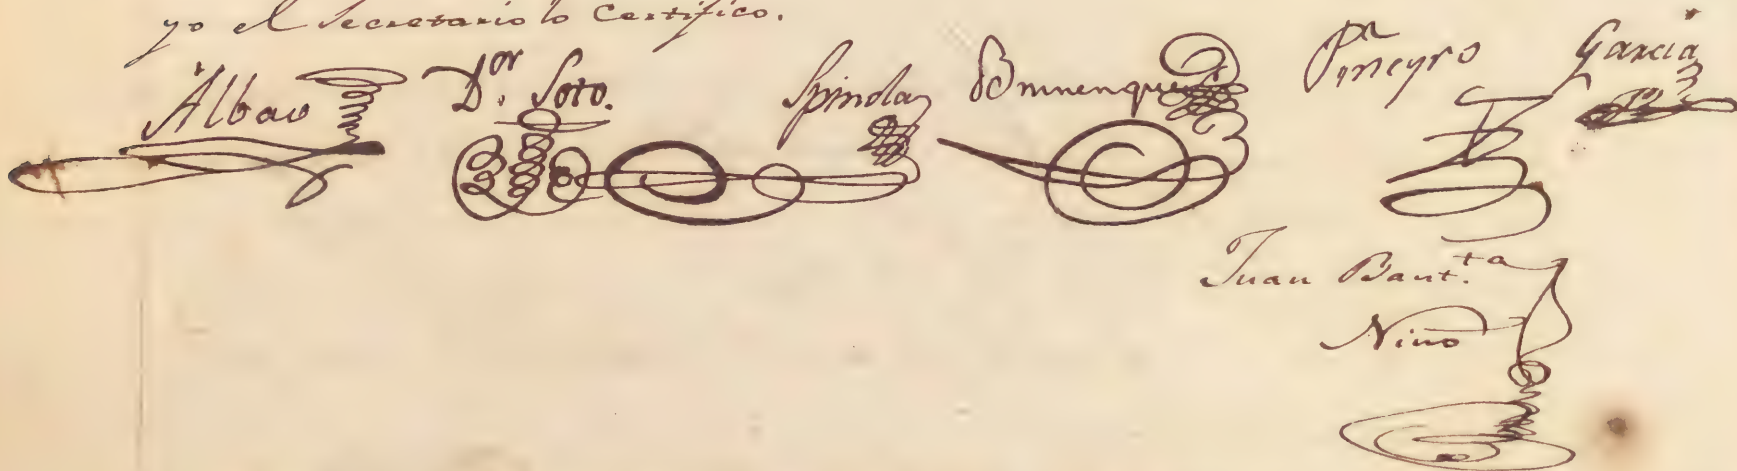 yo el Secretario lo Certifico.
Albao D.or Soto. Spinola Garcia
Juan Baut.ta
Nino